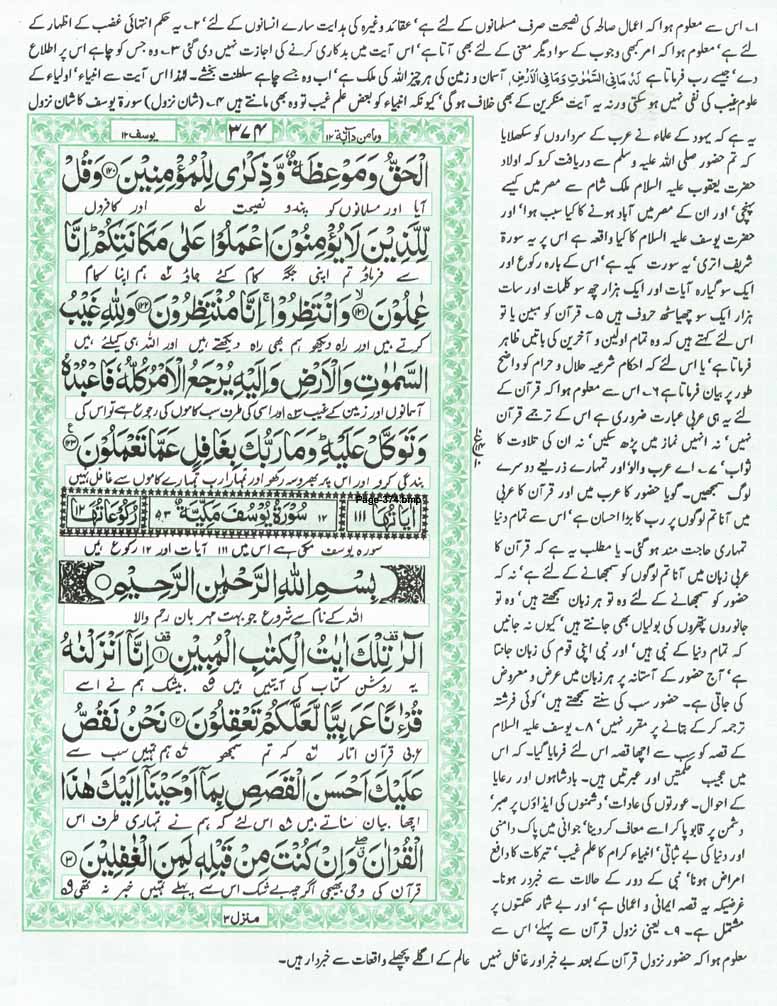 ۱۔ اس سے معلوم ہوا کہ اعمال صالحہ کی نصیحت صرف مسلمانوں کے لئے ہے' عقائد وغیرہ کی ہدایت سارے انسانوں کے لئے' ۲۔ یہ حکم انتہائی غضب کے اظہار کے
لئے ہے' معلوم ہوا کہ امر کبھی وجوب کے سوا دیگر معنی کے لئے بھی آتا ہے' اس آیت میں بدکاری کرنے کی اجازت نہیں دی گئی ۳۔ وہ جس کو چاہے اس پر اطلاع
دے' جیسے رب فرماتا ہے لَہٗ مَا فِی السَّمٰوٰتِ وَمَا فِی الْاَرْضِ آسمان و زمین کی ہر چیز اللہ کی ملک ہے' اب وہ جسے چاہے سلطنت بخشے۔ لہٰذا اس آیت سے انبیاء' اولیاء کے
علوم غیب کی نفی نہیں ہو سکتی ورنہ یہ آیت منکرین کے بھی خلاف ہو گی' کیونکہ انبیاء کو بعض علم غیب تو وہ بھی مانتے ہیں ۴۔ (شان نزول) سورۃ یوسف کا شان نزول
یہ ہے کہ یہود کے علماء نے عرب کے سرداروں کو سکھلایا
کہ تم حضور صلی اللہ علیہ وسلم سے دریافت کرو کہ اولاد
حضرت یعقوب علیہ السلام ملک شام سے مصر میں کیسے
پہنچی' اور ان کے مصر میں آباد ہونے کا کیا سبب ہوا' اور
حضرت یوسف علیہ السلام کا کیا واقعہ ہے اس پر یہ سورۃ
شریف اتری' یہ سورت مکیہ ہے' اس کے بارہ رکوع اور
ایک سو گیارہ آیات اور ایک ہزار چھ سو کلمات اور سات
ہزار ایک سو چھیاسٹھ حروف ہیں ۵۔ قرآن کو مبین یا تو
اس لئے کہتے ہیں کہ وہ تمام اولین و آخرین کی باتیں ظاہر
فرماتا ہے' یا اس لئے کہ احکام شرعیہ حلال و حرام کو واضح
طور پر بیان فرماتا ہے ۶۔ اس سے معلوم ہوا کہ قرآن کے
لئے یہ ہی عربی عبارت ضروری ہے اس کے ترجمے قرآن
نہیں' نہ انہیں نماز میں پڑھ سکیں' نہ ان کی تلاوت کا
ثواب' ۷۔ اے عرب والو! اور تمہارے ذریعے دوسرے
لوگ سمجھیں۔ گویا حضور کا عرب میں اور قرآن کا عربی
میں آنا تم لوگوں پر رب کا بڑا احسان ہے' اس سے تمام دنیا
تمہاری حاجت مند ہو گئی۔ یا مطلب یہ ہے کہ قرآن کا
عربی زبان میں آنا تم لوگوں کو سمجھانے کے لئے ہے' نہ کہ
حضور کو سمجھانے کے لئے وہ تو ہر زبان سمجھتے ہیں' وہ تو
جانوروں پتھروں کی بولیاں بھی جانتے ہیں' کیوں نہ جانیں
کہ تمام دنیا کے نبی ہیں' اور نبی اپنی قوم کی زبان جانتا
ہے' آج حضور کے آستانہ پر ہر زبان میں عرض و معروض
کی جاتی ہے۔ حضور سب کی سنتے سمجھتے ہیں' کوئی فرشتہ
ترجمہ کر کے بتانے پر مقرر نہیں' ۸۔ یوسف علیہ السلام
کے قصہ کو سب سے اچھا قصہ اس لئے فرمایا گیا۔ کہ اس
میں عجیب حکمتیں اور عبرتیں ہیں۔ بادشاہوں اور رعایا
کے احوال۔ عورتوں کی عادات' دشمنوں کی ایذاؤں پر صبر'
دشمن پر قابو پا کر اسے معاف کر دینا' جوانی میں پاک دامنی
اور دنیا کی بے ثباتی' انبیاء کرام کا علم غیب' تبرکات کا دافع
امراض ہونا' نبی کے دور کے حالات سے خبردار ہونا۔
غرضیکہ یہ قصہ ایمانی و اعمالی ہے' اور بے شمار حکمتوں پر
مشتمل ہے۔ ۹۔ یعنی نزول قرآن سے پہلے' اس سے
معلوم ہوا کہ حضور نزول قرآن کے بعد بے خبر اور غافل نہیں عالم کے اگلے پچھلے واقعات سے خبردار ہیں۔
ومامن دآبۃ ۱۲ ۳۷۴ یوسف ۱۲
الْحَقُّ وَمَوْعِظَةٌ وَّذِكْرٰى لِلْمُؤْمِنِيْنَ ﴿۱۲۰﴾ وَقُلْ
آیا اور مسلمانوں کو پند و نصیحت اور کافروں
لِّلَّذِيْنَ لَا يُؤْمِنُوْنَ اعْمَلُوْا عَلٰى مَكَانَتِكُمْ ۭ اِنَّا
سے فرماؤ تم اپنی جگہ کام کئے جاؤ ہم اپنا کام
عٰمِلُوْنَ ﴿۱۲۱﴾ وَانْتَظِرُوْا ۚ اِنَّا مُنْتَظِرُوْنَ ﴿۱۲۲﴾ وَلِلّٰهِ غَيْبُ
کرتے ہیں اور راہ دیکھو ہم بھی راہ دیکھتے ہیں اور اللہ ہی کیلئے ہیں
السَّمٰوٰتِ وَالْاَرْضِ وَاِلَيْهِ يُرْجَعُ الْاَمْرُ كُلُّهٗ فَاعْبُدْهُ
آسمانوں اور زمین کے غیب اور اسی کی طرف سب کاموں کی رجوع ہے تو اس کی
وَتَوَكَّلْ عَلَيْهِ ۭ وَمَا رَبُّكَ بِغَافِلٍ عَمَّا تَعْمَلُوْنَ ﴿۱۲۳﴾
بندگی کرو اور اس پر بھروسہ رکھو اور تمہارا رب تمہارے کاموں سے غافل نہیں
Page 374.bmp
اٰيَاتُهَا ۱۱۱ ۱۲ سُوْرَةُ يُوْسُفَ مَكِّيَّةٌ ۵۳ رُكُوْعَاتُهَا ۱۲
سورہ یوسف مکی ہے اس میں ۱۱۱ آیات اور ۱۲ رکوع ہیں
بِسْمِ اللّٰهِ الرَّحْمٰنِ الرَّحِيْمِ
اللہ کے نام سے شروع جو بہت مہربان رحم والا
الٓرٰ ۣ تِلْكَ اٰيٰتُ الْكِتٰبِ الْمُبِيْنِ ﴿۱﴾ اِنَّآ اَنْزَلْنٰهُ
یہ روشن کتاب کی آیتیں ہیں بیشک ہم نے اسے
قُرْءٰنًا عَرَبِيًّا لَّعَلَّكُمْ تَعْقِلُوْنَ ﴿۲﴾ نَحْنُ نَقُصُّ
عربی قرآن اتارا کہ تم سمجھو ہم تمہیں سب سے
عَلَيْكَ اَحْسَنَ الْقَصَصِ بِمَآ اَوْحَيْنَآ اِلَيْكَ هٰذَا
اچھا بیان سناتے ہیں اس لئے کہ ہم نے تمہاری طرف اس
الْقُرْاٰنَ ۖ وَاِنْ كُنْتَ مِنْ قَبْلِهٖ لَمِنَ الْغٰفِلِيْنَ ﴿۳﴾
قرآن کی وحی بھیجی اگرچہ بے شک اس سے پہلے تمہیں خبر نہ تھی
منزل ۳